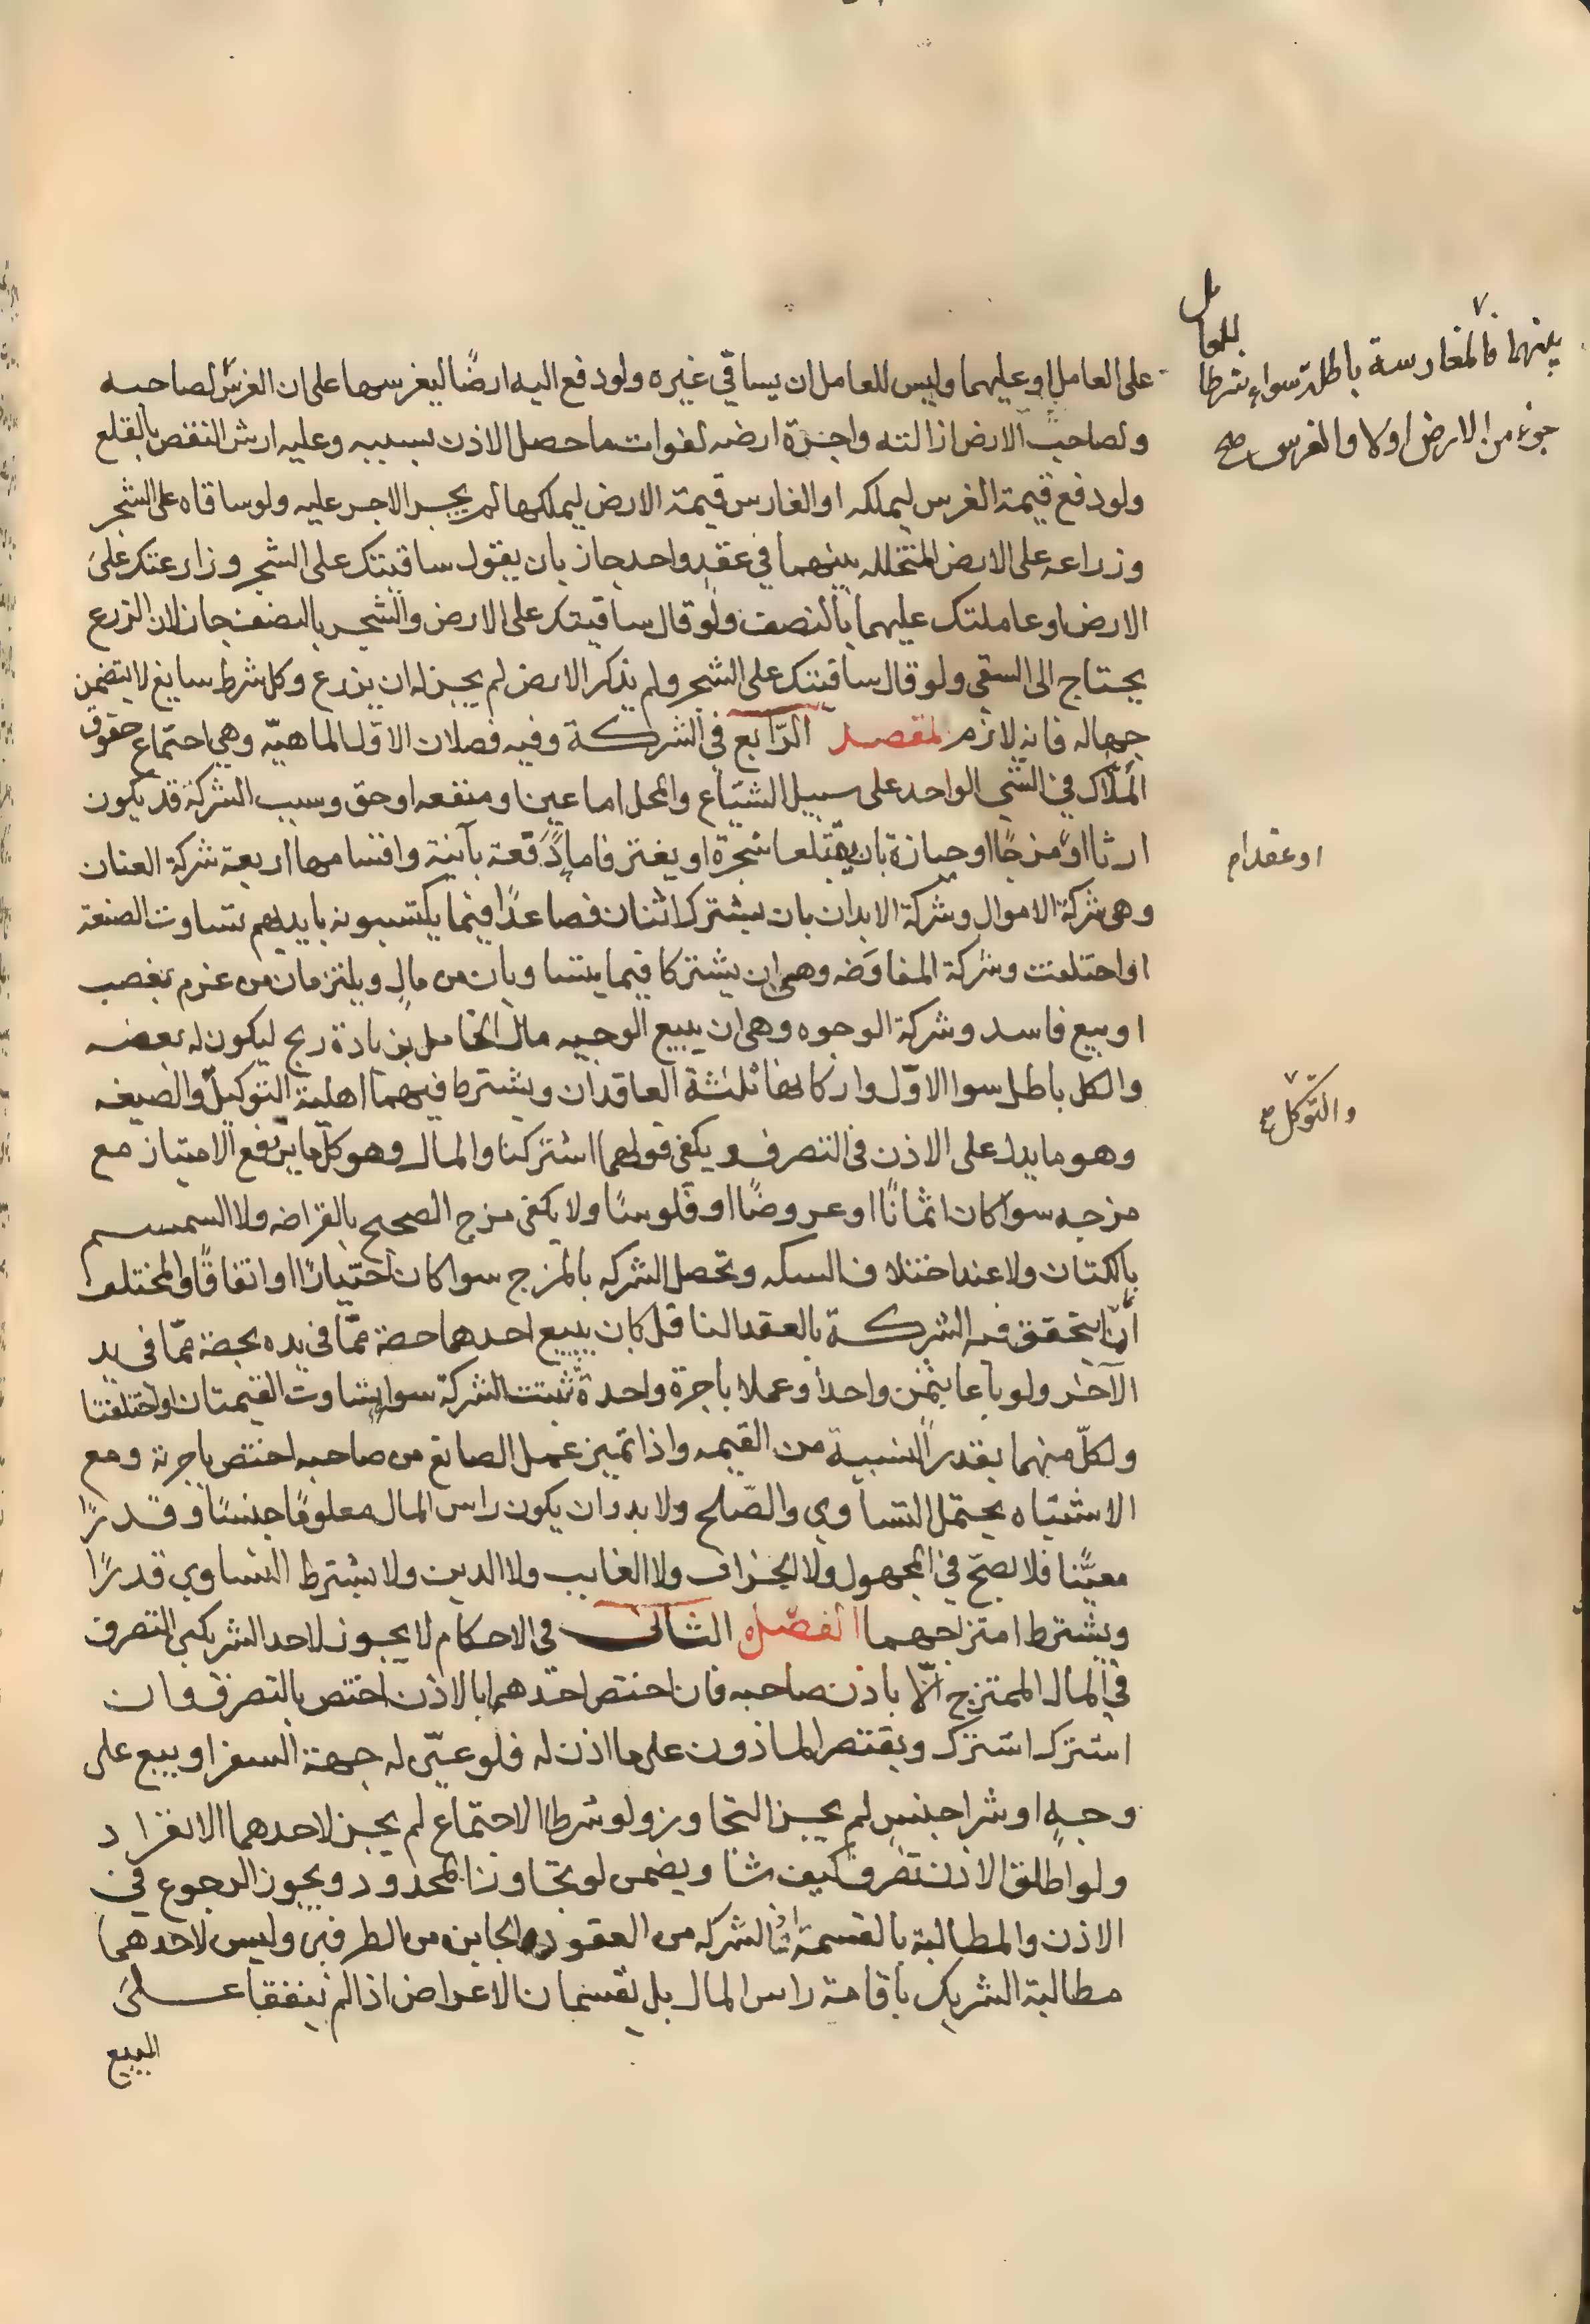 على العامل او عليهما وليس للعامل ان يساقي غيره ولو دفع اليه ارضًا ليغرسها على ان الغرس لصاحبه
ولصاحب الارض ازالته واجرة ارضه لفوات ما حصل الاذن بسببه وعليه ارش النقص بالقلع
ولو دفع قيمة الغرس ليملكه او الغارس قيمة الارض ليملكها لم يجبر الاخر عليه ولو ساقاه على الشجر
وزراعه على الارض المتخلله بينهما في عقد واحد جاز بان يقول ساقيتك على الشجر وزارعتك على
الارض او عاملتك عليهما بالنصف ولو قال ساقيتك على الارض والشجر بالنصف جاز لان الزرع
يحتاج الى السقي ولو قال ساقيتك على الشجر ولم يذكر الارض لم يجز له ان يزرع وكل شرط سايغ لا يتضمن
جهاله فانه لازم المقصد الرّابع في الشركة وفيه فصلان الاوّل الماهيّه وهي اجتماع حقوق
الملّاك في الشي الواحد على سبيل الشياع والمحل اما عين او منفعه او حق وسبب الشركة قد يكون
ارثا او مزجًا او حيازة بان يقتلعا شجرة او يغترفا ماءً دَفعة بآنية واقسامها اربعة شركة العنان
وهي شركة الاموال وشركة الابدان بان يشترك اثنان فصاعدًا فيما يكتسبونه بايديهم تساوت الصنعة
او اختلفت وشركة المفاوَضه وهي ان يشتركا فيما يتساويان من مالٍ ويلتزمان من غرم بغصب
او بيع فاسد وشركة الوجوه وهي ان يبيع الوجيه مال الخامل بزيادة ربح ليكون له بعضه
والكل باطل سوا الاوّل واركانها ثلثة العاقدان ويشترط فيهما اهلية التوكيل والصيغه
وهو ما يدل على الاذن في التصرف ويكفى قولهما اشتركنا والمال وهو كل ما يرتفع الامتياز مع
مزجه سوا كان اثمانًا او عروضًا او فلوسًا ولا يكفى مزج الصحيح بالقراضه ولا السمسم
بالكتان ولا عند اختلاف السكه وتحصل الشركه بالمزج سوا كان اختيارًا او اتفاقًا والمختلف
انما يتحقق فيه الشركة بالعقد الناقل كان يبيع احدهما حصة ممّا في يده بحصة ممّا في يد
الآخر ولو باعا بثمن واحد او عملا باجرة واحدة ثبتت الشركة سوا تساوت القيمتان او اختلفتا
ولكلّ منهما بقدر النسبة من القيمه واذا تميز عمل الصانع من صاحبه اختص باجرته ومع
الاشتباه يحتمل التساوي والصّلح ولا بد وان يكون راس المال معلومًا جنسًا وقدرًا
معيّنا فلا يصحّ في المجهول ولا الجزاف ولا الغايب ولا الدين ولا يشترط التساوي قدرًا
ويشترط امتزاجهما الفصل الثاني في الاحكام لا يجوز لاحد الشريكين التصرف
في المال الممتزج الّا باذن صاحبه فان اختص احدهما بالاذن اختص بالتصرف وان
اشترك اشترك ويقتصر الماذون على ما اذن له فلو عيّن له جهة السفر او بيع على
وجهٍ او شرا جنسٍ لم يجز التجاوز ولو شرطا الاجتماع لم يجز لاحدهما الانفراد
ولو اطلق الاذن تصرف كيف شا ويضمن لو تجاوز المحدود ويجوز الرجوع في
الاذن والمطالبة بالقسمة اذ الشركه من العقود الجايزه من الطرفين وليس لاحدهما
مطالبة الشريك باقامة راس المال بل يقتسمان الاعراض اذا لم يتفقا على
البيع
بينهما فالمغارسة باطلة سواء شرطا للعامل
جزءً من الارض او لا والغرس صح
او عقدا م
والتوكل صح